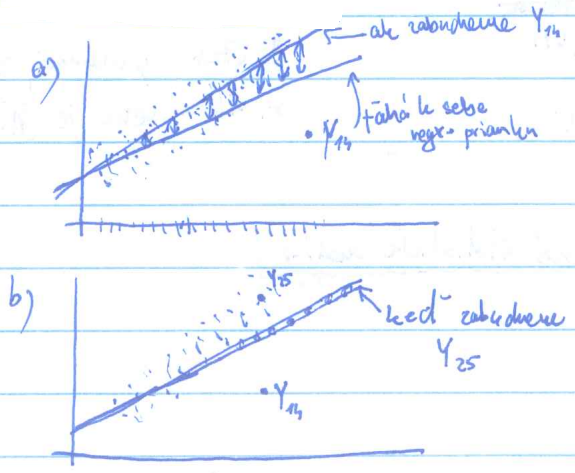 a)
ak zabudneme Y₁₄
ťahá k sebe
Y₁₄
regr. priamku
b)
Y₂₅
keď zabudneme
Y₂₅
Y₁₄